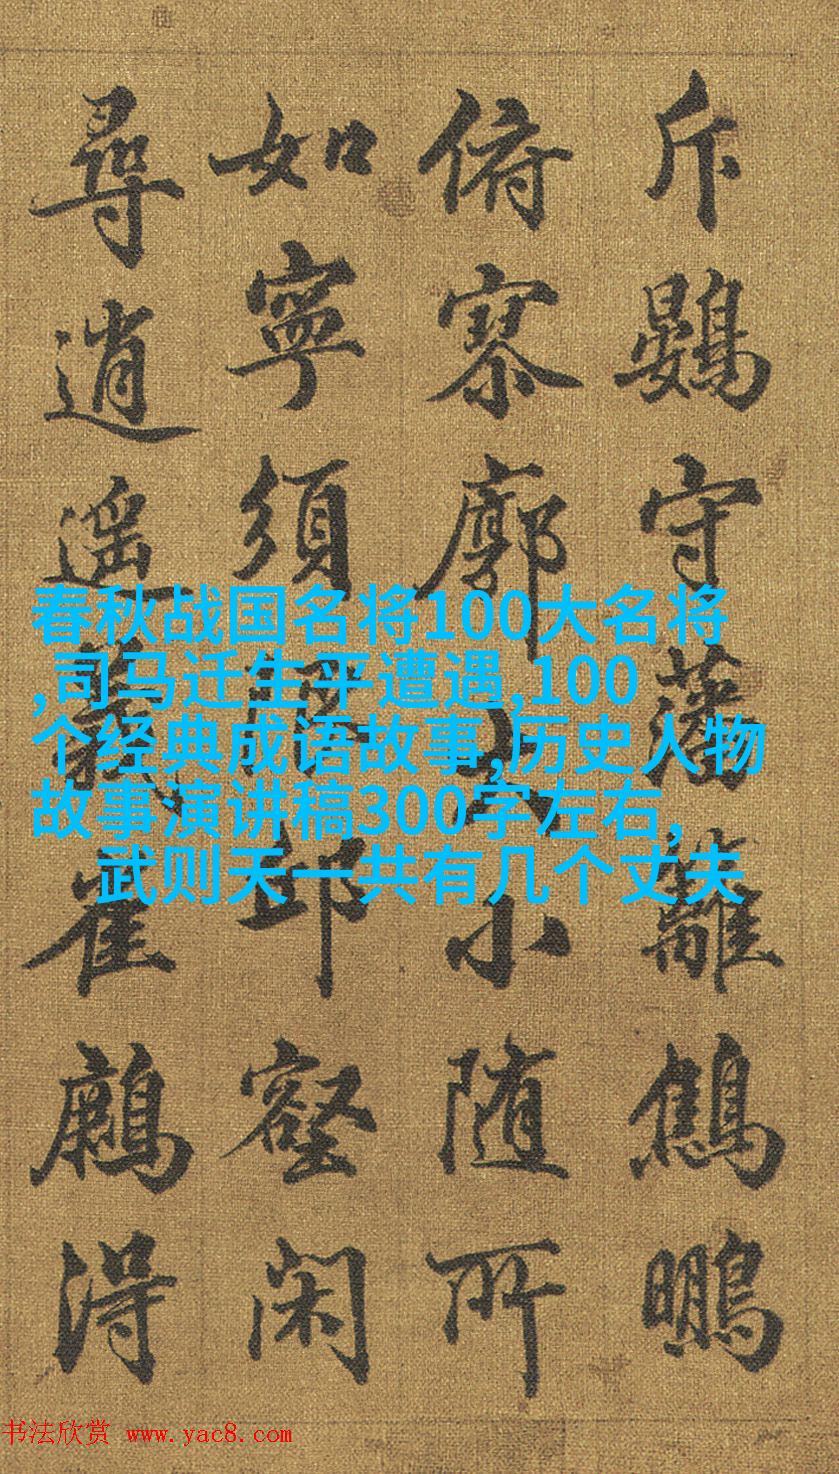 斥鷃守藩籬鷦鵬
俯寥廓大小随所
如寧須邱壑閑
尋逍遥義雀得
春秋战国名将100大名将
,司马迁生平遭遇,100
个经典成语故事,历史人物
故事演讲稿300字左右,
武则天一共有几个丈夫
书法欣赏 www.yac8.com